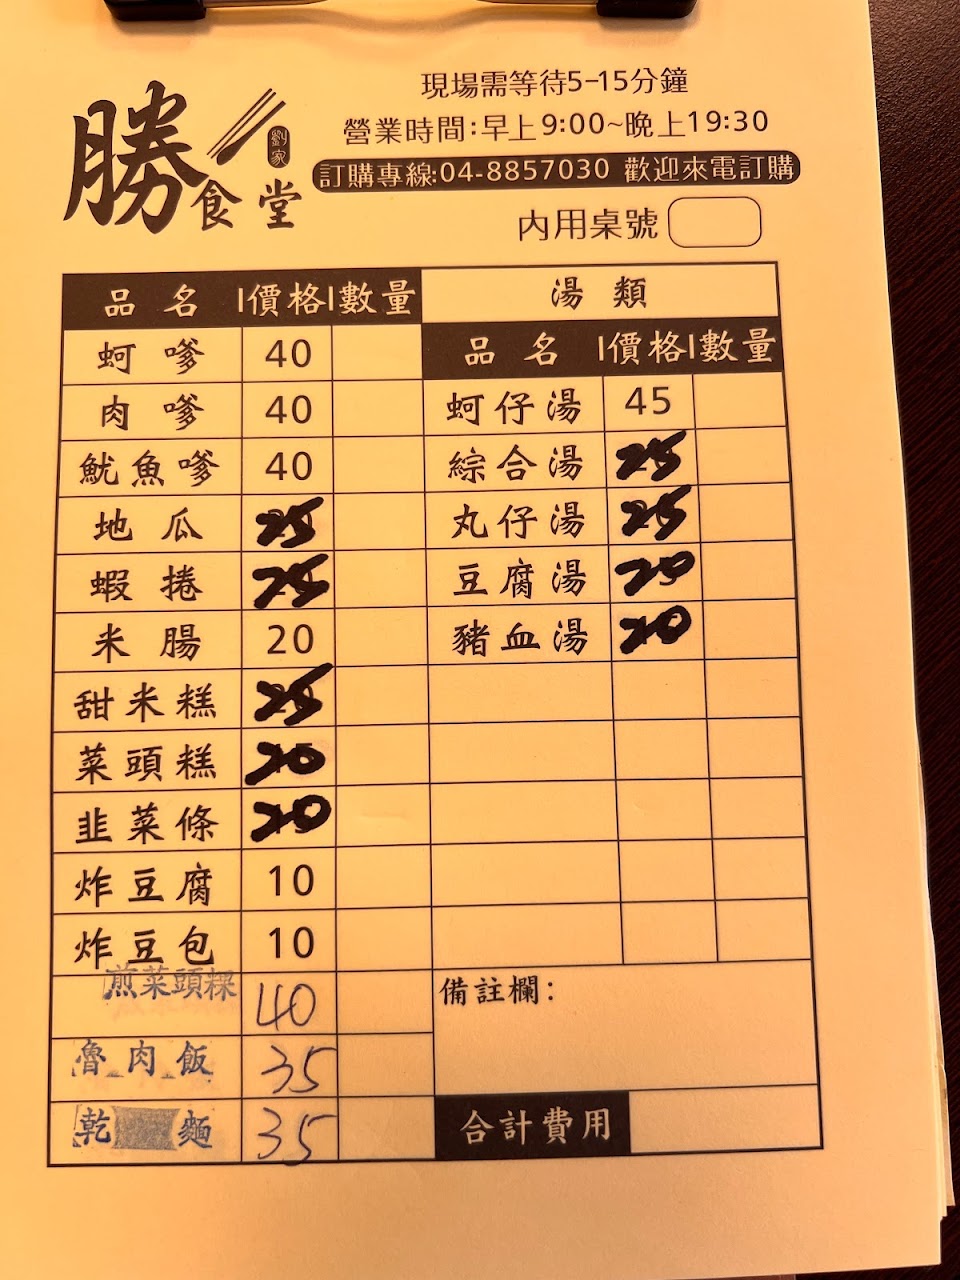 勝食堂
劉家
現場需等待5-15分鐘
營業時間:早上9:00~晚上19:30
訂購專線:04-8857030 歡迎來電訂購
內用桌號
品名 價格 數量
蚵嗲 40
肉嗲 40
魷魚嗲 40
地瓜 25
蝦捲 25
米腸 20
甜米糕 25
菜頭糕 20
韭菜條 20
炸豆腐 10
炸豆包 10
煎菜頭粿 40
魯肉飯 35
乾 麵 35
湯類
品名 價格 數量
蚵仔湯 45
綜合湯 25
丸仔湯 25
豆腐湯 20
豬血湯 20
備註欄:
合計費用